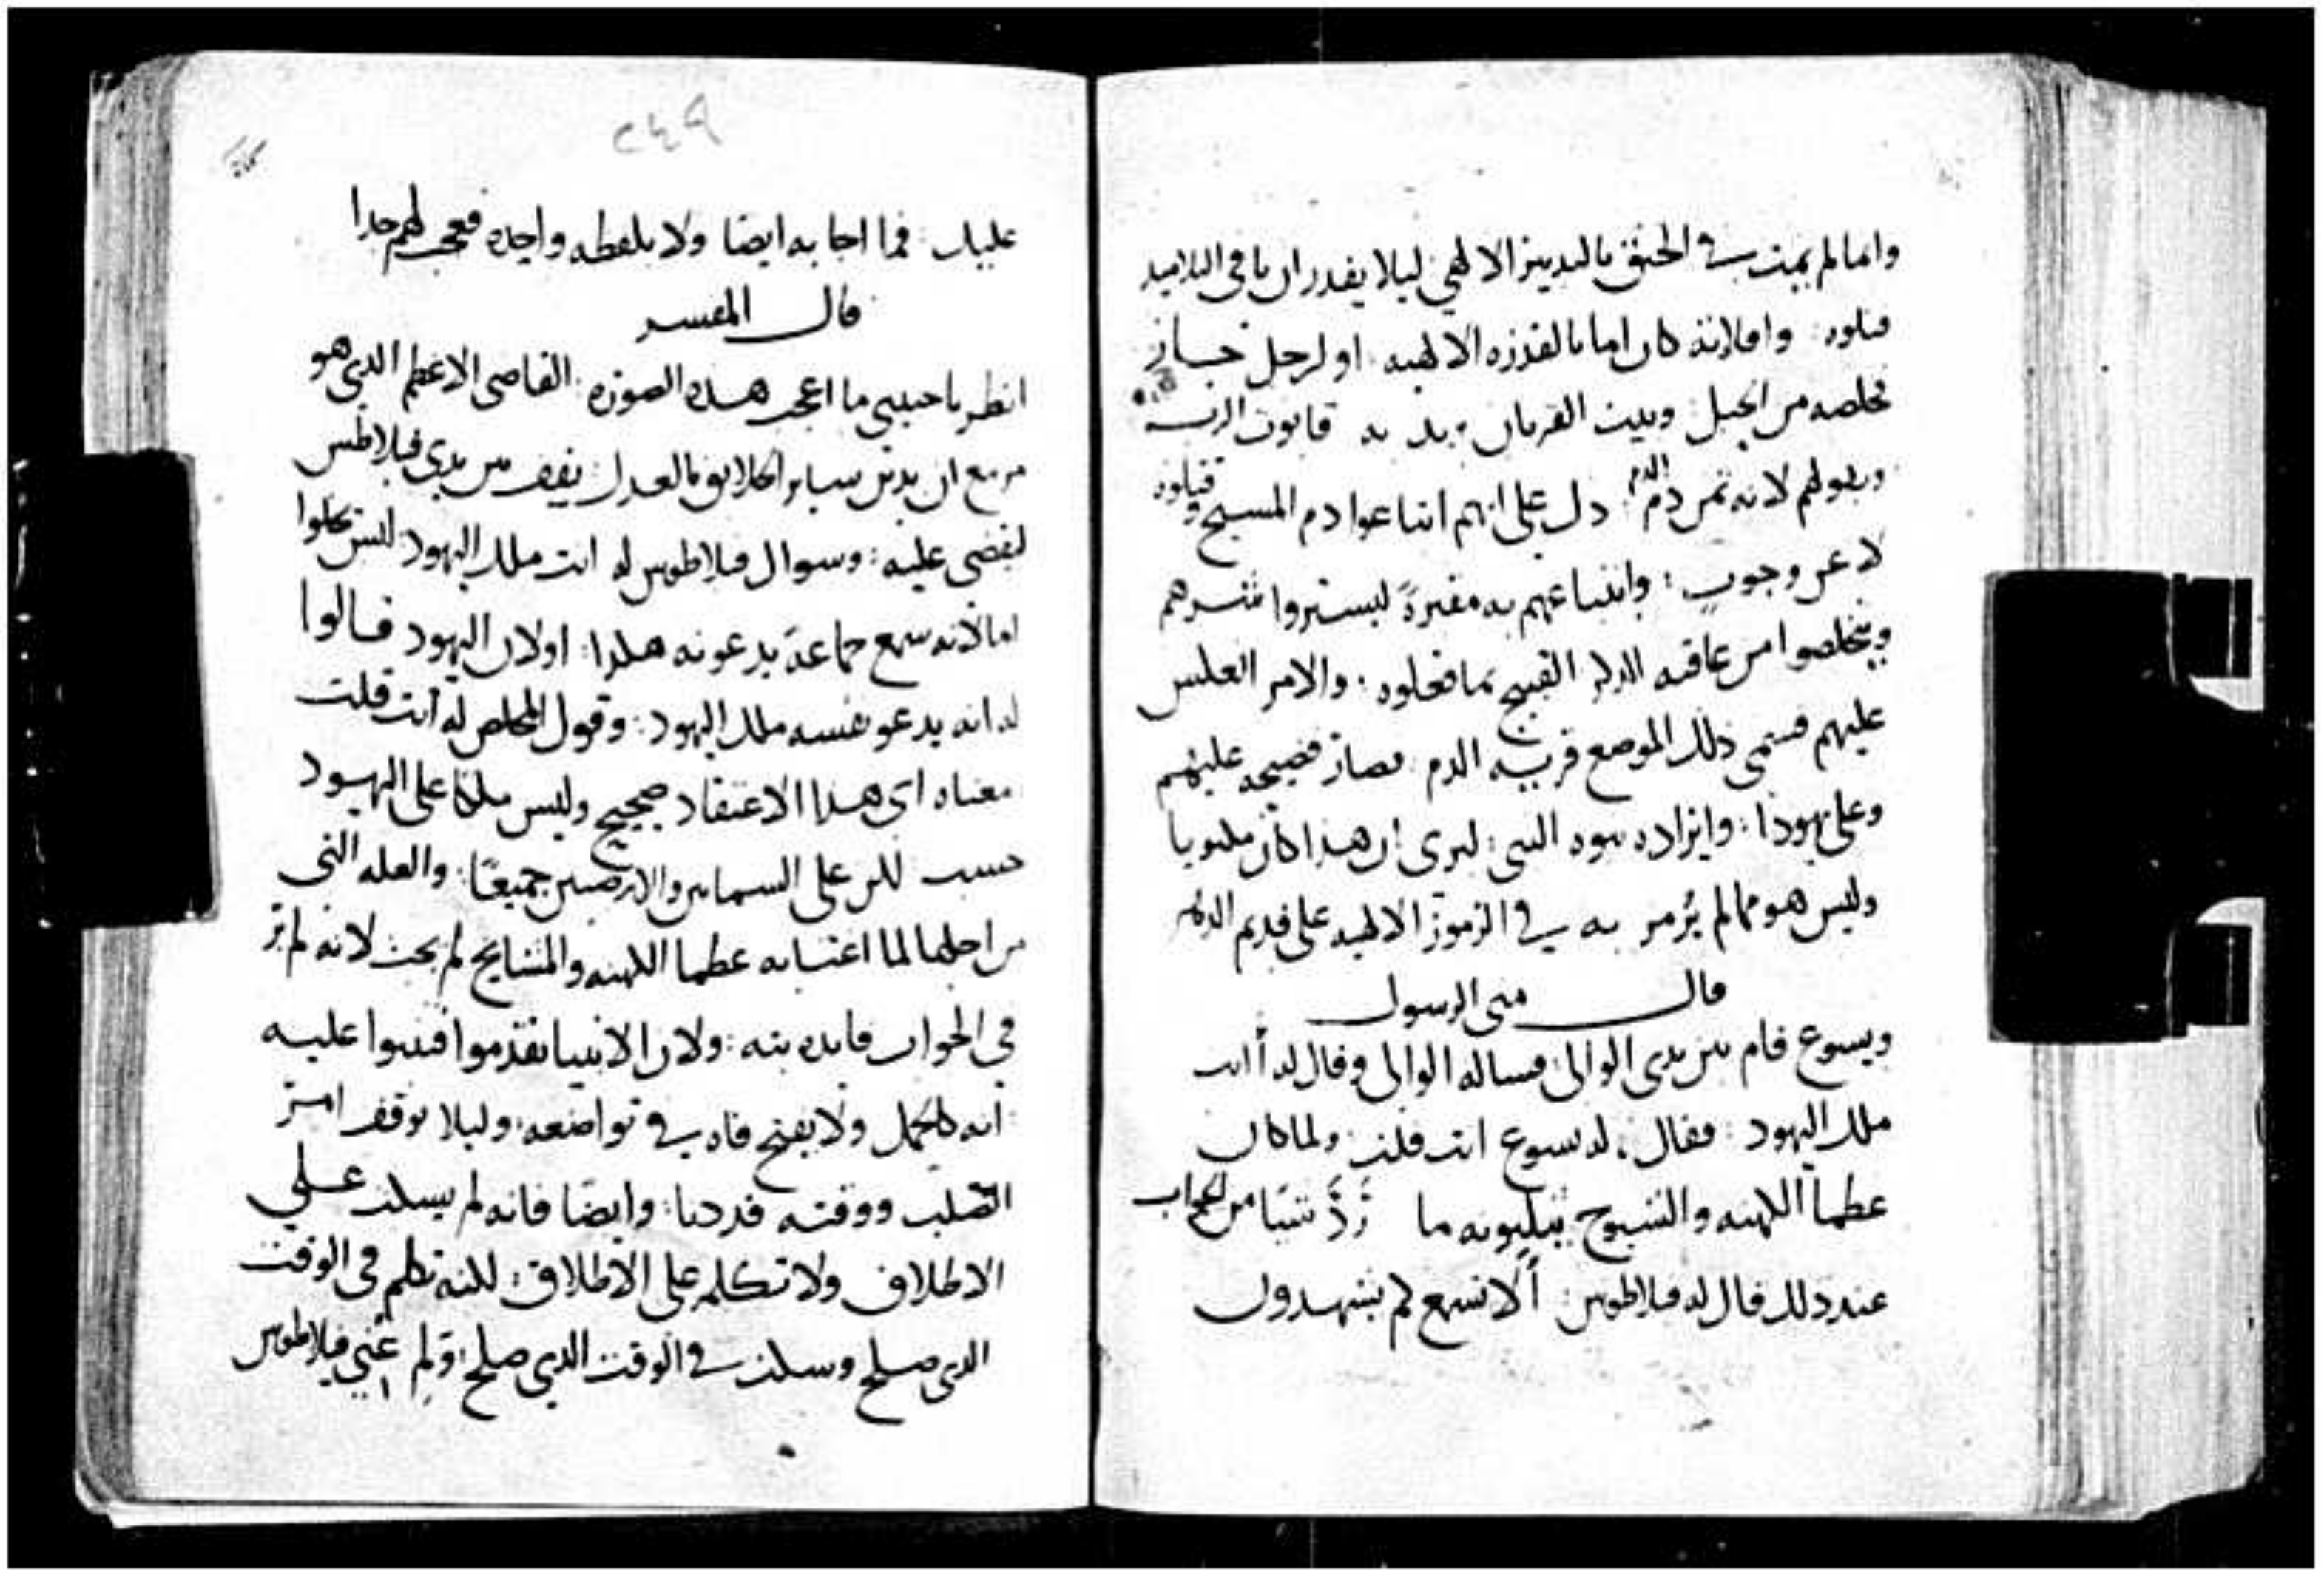 وانما لم يميت في الخنق بالتدبير الالهي ليلا يقدر ان باقي التلاميذ
قتلوه وافلاته كان اما بالقدرة الالهيه او لرجل جاز
خلصه من الحبل وبيت القربان يريد به قابوت الرب
وبقولهم لانه ثمن دم الدم دل على انهم ابتاعوا دم المسيح وقتلوه
لا عن وجوب وابتياعهم به مقبرةً ليستروا شرهم
ويتخلصوا من عاقبه الذكر القبيح بما فعلوه والامر انعكس
عليهم فسمى ذلك الموضع قرية الدم فصار فضيحه عليهم
وعلى يهوذا وايراده نبوه النبي ليرى ان هذا كان مكتوبا
وليس هو مما لم يُرمز به في الرموز الالهيه على قديم الدهر
قال متى الرسول
ويسوع قام بين يدى الوالى فساله الوالى وقال له أانت
ملك اليهود فقال له يسوع انت قلت ولما كان
عظما الكهنه والشيوخ يثلبونه ما رَدَّ شيًا من الجواب
عند ذلك قال له فيلاطوس ألا تسمع كم يشهدون
٢٤٩
عليك فما اجابه ايضا ولا بلفظه واحده فعجب لهم جدا
قال المفسر
انظر يا حبيبي ما اعجب هذه الصورة القاضى الاعظم الذى هو
مزمع ان يدين ساير الخلايق بالعدل يقف بين يدى فيلاطس
ليقضى عليه وسوال فيلاطوس له انت ملك اليهود ليس يخلوا
اما لانه سمع جماعة يدعونه هكذا اولان اليهود قالوا
له انه يدعو نفسه ملك اليهود وقول المخلص له أنت قلت
معناه اى هذا الاعتقاد صحيح وليس ملكا على اليهود
حسب لكن على السماين والارضين جميعًا والعله التى
من اجلها لما اغتابه عظما الكهنه والمشايخ لم يجب لانه لم ير
في الجواب فايده بته ولان الانبيا تقدموا فتنبوا عليه
أنه كالحمل ولا يفتح فاه في تواضعه وليلا توقف امر
الصلب ووقته قد دنا وايضًا فانه لم يسكت على
الاطلاق ولا تكلم على الاطلاق لكنه تكلم في الوقت
الذى صلح وسكت في الوقت الذى صلح ولم عُني فيلاطوس